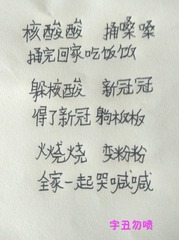 核酸酸 捅嗓嗓
捅完回家吃饭饭
躲核酸 新冠冠
得了新冠躺板板
火烧烧 变粉粉
全家一起哭喊喊
字丑勿喷